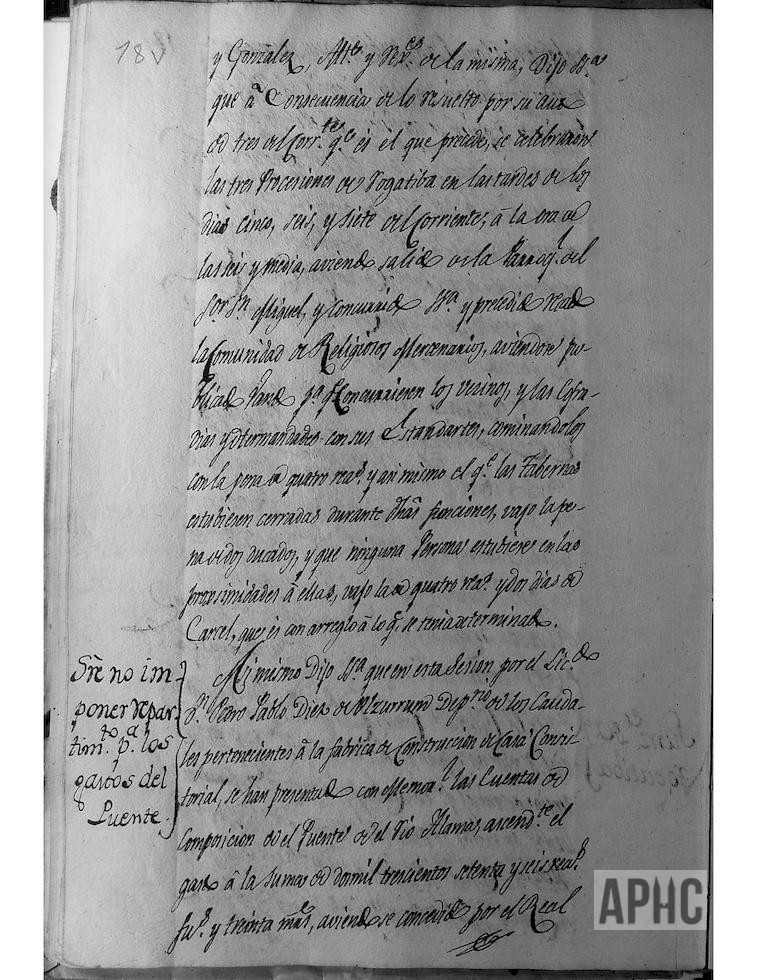 18v
y Gonzalez, Alt.º y Rex.es de la misma, Dijo SS.ª
que à Consecuencia de lo resuelto por su auto
de tres del Corr.te q.e es el que precede, se celebraron
las tres Procesiones de Rogatiba en las tardes de los
dias cinco, seis, y siete del Corriente, à la ora de
las seis y media, aviendo salido de la Parroq.l del
Sor. Sn. Miguel, y Concurrido SS.ª y precedido
la Comunidad de Religiosos Mercenarios, aviendose pu-
blicado Vando p.ª q.e Concurriesen los vecinos, y las Cofra-
dias y Hermandades con sus Estandartes, cominandolos
con la pena de quatro rea.s y asi mismo el q.e las Tabernas
estubiesen cerradas durante dhas funciones, vajo la pe-
na de dos ducados, y que ninguna Persona estubiese en las
proximidades à ellas, vajo la de quatro rea.s y dos dias de
Carcel, que es con arreglo à lo q.e se tenia determinado.
Sre. no im-
poner repar-
tim.to p.ª los
gastos del
Puente.
Asi mismo Dijo SS.ª que en esta Sesion por el Lic.do
D.n Pedro Pablo Diez de Ulzurrun Dep.rio de los Cauda-
les pertenecientes à la fabrica de Construccion de Casa Consis-
torial, se han presentado con Memor.l las Cuentas de
Composicion del Puente del Rio Alamas, ascend.te el
gasto à la suma de dos mil trescientos setenta y seis rea.s
fu.s y treinta mrs, aviendose concedido por el Real
APHC